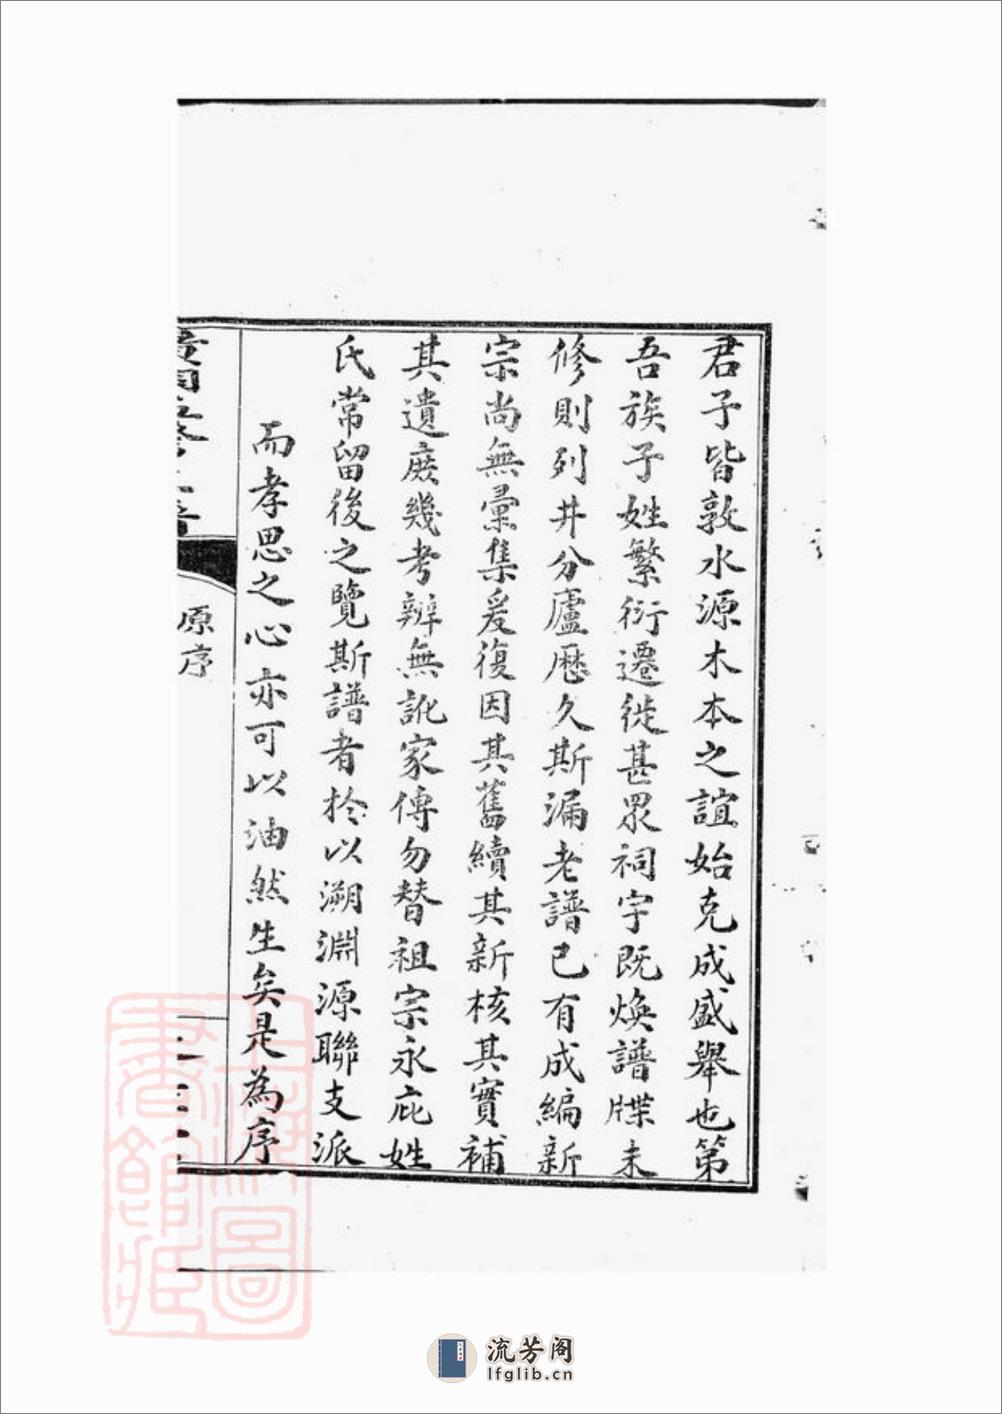 君子皆敦水源木本之誼始克成盛舉也第
吾族子姓繁衍遷徙甚眾祠宇既煥譜牒未
修則列井分廬歷久斯漏老譜已有成編新
宗尚無彙集爰復因其舊續其新核其實補
其遺庶幾考辨無訛家傳勿替祖宗永庇姓
氏常留後之覽斯譜者於以溯淵源聯支派
而孝思之心亦可以油然生矣是為序
原序
上海圖
書館藏
流芳阁
lfglib.cn